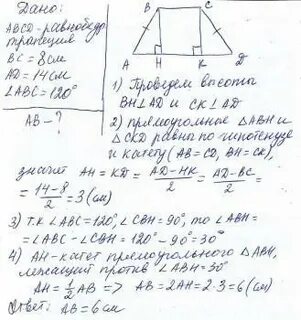 Дано:
ABCD-равнобедр.
трапеция
BC = 8см
AD = 14см
∠ABC = 120°
AB - ?
B C
A H K D
1) Проведем высоты
BH⊥AD и CK⊥AD
2) прямоугольные △ABH и
△CKD равны по гипотенузе
и катету (AB = CD, BH = CK),
значит AH = KD = (AD-HK)/2 = (AD-BC)/2 =
= (14-8)/2 = 3 (см)
3) Т.к ∠ABC=120°, ∠CBH=90°, то ∠ABH=
= ∠ABC - ∠CBH = 120° - 90° = 30°
4) AH-катет прямоугольного △ABH,
лежащий против ∠ABH=30°
AH = 1/2 AB => AB = 2AH = 2·3 = 6(см)
Ответ: AB = 6см